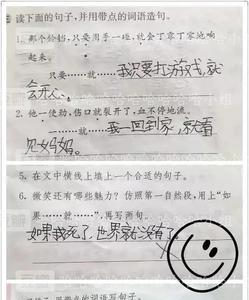 读下面的句子,并用带点的词语造句。
1. 那个铃铛,只要用手一碰,就会丁零丁零地响
起来。
只要……就……我只要打游戏,就
会开心。
2. 他一使劲,伤口就裂开了,血不停地流。
一……就……我一回到家,就看
见妈妈。
5. 在文中横线上填上一个合适的句子。
6. 微笑还有哪些魅力?仿照第一自然段,用上“如
果……就……”,再写两句。
如果我死了,世界就没有了。